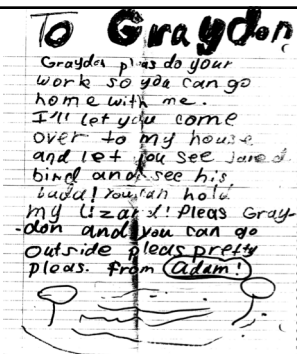 To Graydon
Graydon pleas do your
work so you can go
home with me.
I'll let you come
over to my house
and let you see jared
bird and see his
badd! You can hold
my lizard! Pleas Gray-
-don and you can go
outside pleas pretty
pleas. from Adam!